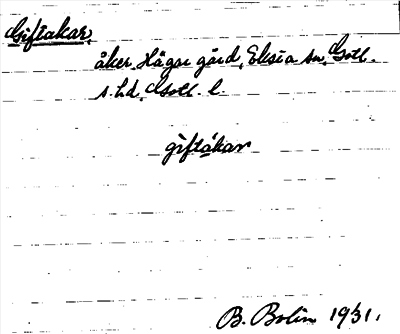 Giftakar,
åker, Hägur gård, Eksta sn, Gotl.
s. hd, Gotl. l.
gìftákar
B. Bolin 1931.